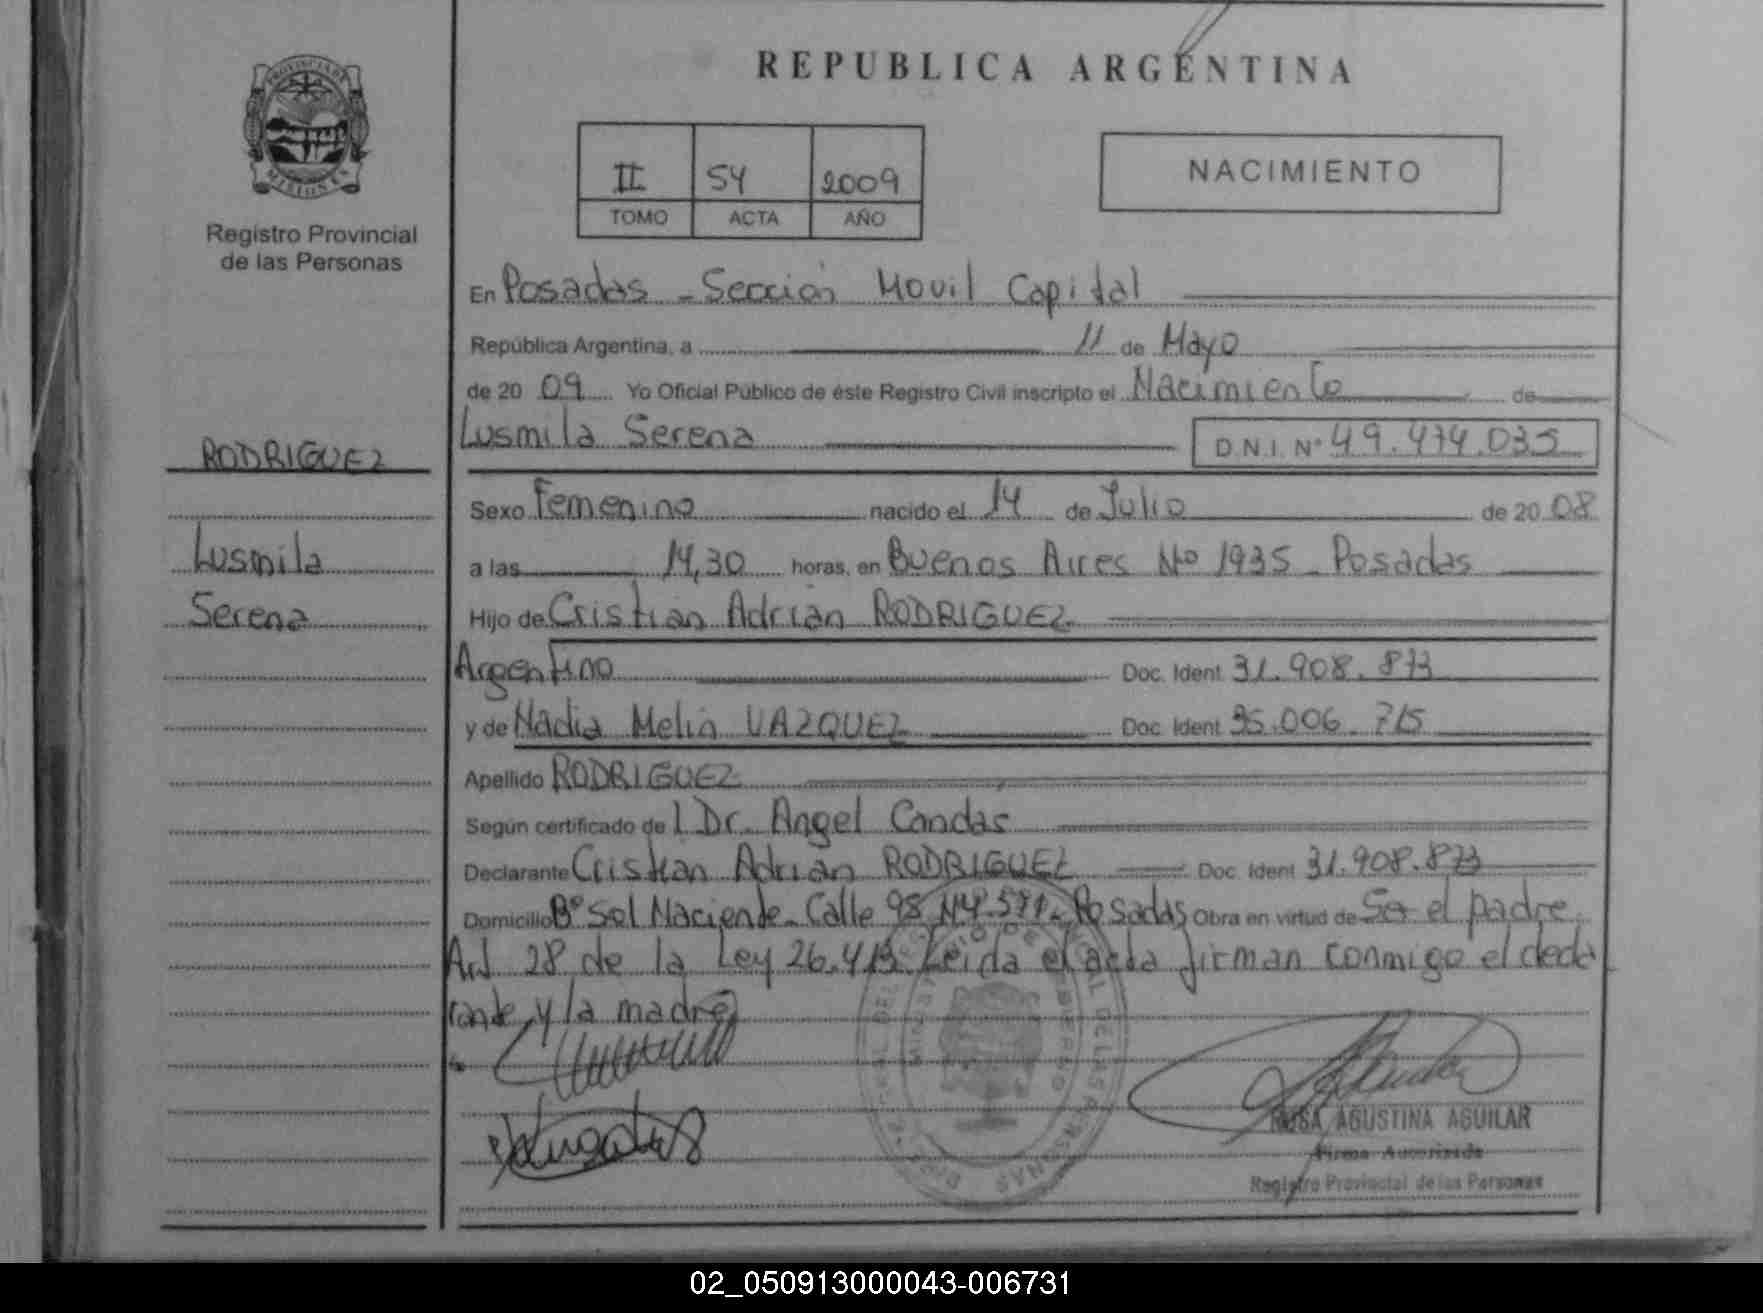 PROVINCIA DE
MISIONES
Registro Provincial
de las Personas
RODRIGUEZ
Lusmila
Serena
REPUBLICA ARGENTINA
II 54 2009
TOMO ACTA AÑO
NACIMIENTO
En Posadas - Sección Movil Capital
República Argentina, a 11 de Mayo
de 20 09 Yo Oficial Público de éste Registro Civil inscripto el Nacimiento de
Lusmila Serena D.N.I. Nº 49.474.035
Sexo Femenino nacido el 14 de Julio de 20 08
a las 14,30 horas, en Buenos Aires Nº 1935 - Posadas
Hijo de Cristian Adrian RODRIGUEZ
Argentino Doc. Ident 31.908.873
y de Nadia Melin VAZQUEZ Doc. Ident 35.006.715
Apellido RODRIGUEZ
Según certificado de l Dr. Angel Candas
Declarante Cristian Adrian RODRIGUEZ Doc. Ident 31.908.873
Domicilio Bº Sol Naciente - Calle 98 Nº 571 - Posadas Obra en virtud de Ser el padre
Art 28 de la Ley 26.413. Leida el acta firman conmigo el decla
rante y la madre
ROSA AGUSTINA AGUILAR
Firma Autorizada
Registro Provincial de las Personas
02_050913000043-006731